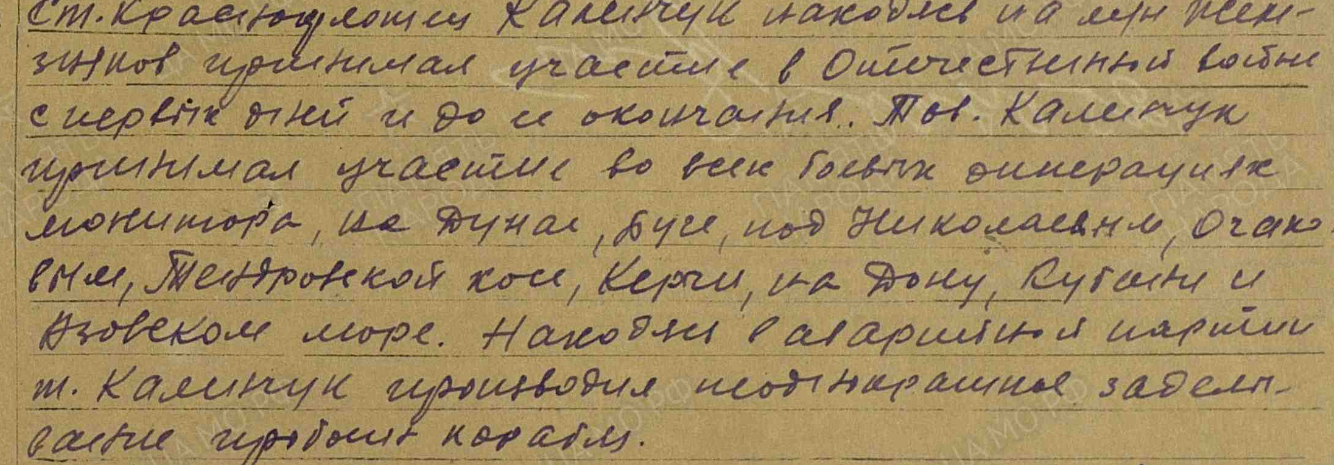 Ст. Краснофлотец Калинчук находясь на мн Желез-
няков принимал участие в Отечественной войне
с первых дней и до ее окончания. Тов. Калинчук
принимал участие во всех боевых операциях
монитора, на Дунае, Буге, под Николаевым, Очако-
вым, Тендровской косе, Керчи, на Дону, Кубани и
Азовском море. Находясь в аварийной партии
т. Калинчук производил неоднократное заделы-
вание пробоин корабля.